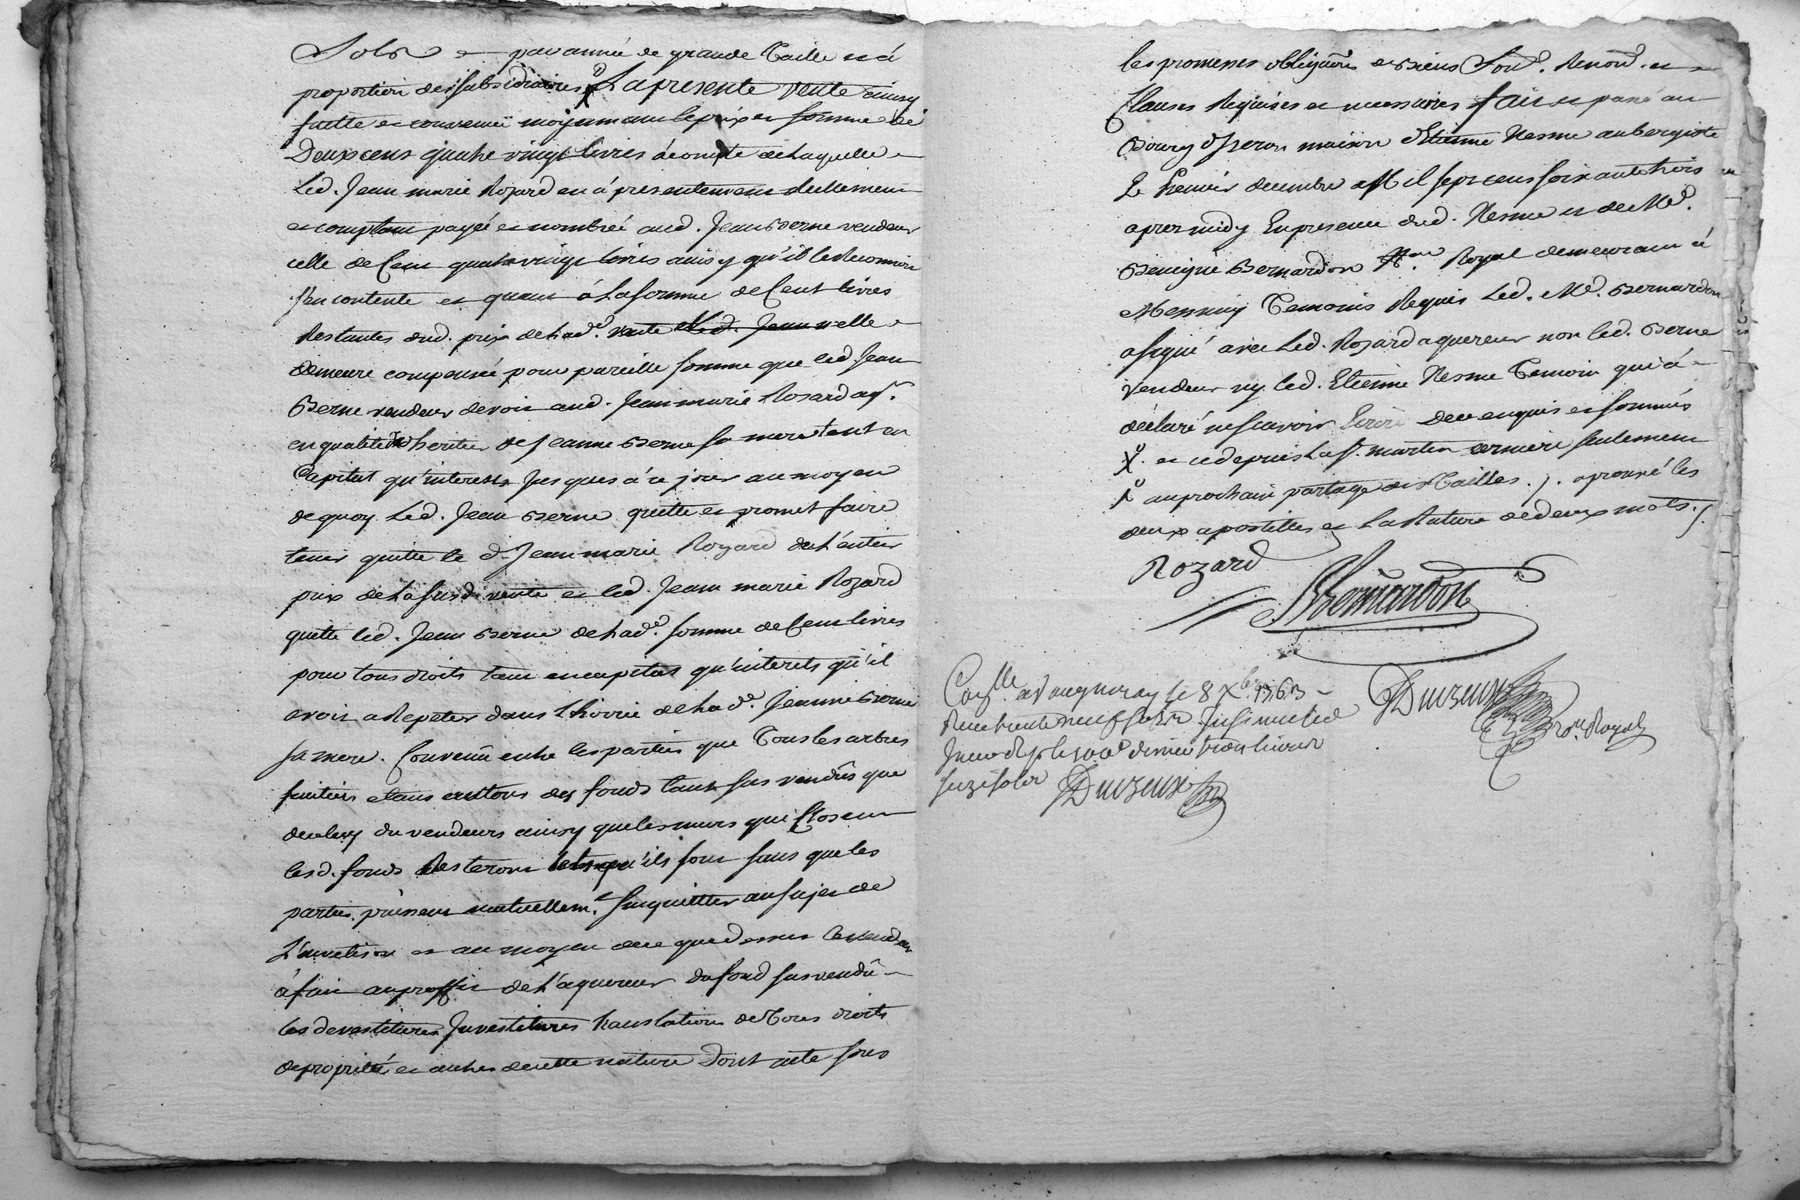 Sols et par année de grande Taille et à
proportion des subsidiaires X La presente vente ainsy
faitte et convenue moyennant le prix et somme de
Deux cens quatre vingt livres acompte de laquelle
Led. Jean marie Rozard en a presentement réellement
et comptant payé et nombré aud. Jean Berne vendeur
celle de Cent quatre vingt livres ainsy qu'il le Reconnoit
s'en contente et quant à La somme de Cent livres
Restantes dud. prix de lad.e vente elle
demeure compensé pour pareille somme que led Jean
Berne vendeur devoit aud. Jean marie Rozard aq.r
en qualité d'heritier de Jeanne Berne sa mere tant en
Capital qu'interests Jusques à ce jour au moyen
de quoy Led. Jean Berne quitte et promet faire
tenir quitte le d. Jean marie Rozard de l'entier
prix de La susd. vente et led. Jean marie Rozard
quitte led. Jean Berne de lad.e somme de Cent livres
pour tous droits tant en capital qu'interets qu'il
avoit a Repeter dans L'hoirie de lad.e Jeanne Berne
sa mere. Convenu entre les parties que Tous les arbres
fruitiers etans autour des fonds tant sus vendûs que
de celuy du vendeurs ainsy que les murs qui Closent
lesd. fonds Resteront tels qu'ils sont sans que les
parties puissent mutuellem.t s'inquietter au sujet de
L'ancetison et au moyen de ce que dessus Le vendeur
à fait au proffit de L'aquereur du fond sus vendû
les devestitures Investitures translations de Tous droits
de proprieté et autres de cette nature Dont acte sous
les promesses obligaõns de biens Soûd. Renonõ. et
Clauses Requises et necessaires fait et passé au
Bourg d'Iseron maison d'Etienne Nesme aubergiste
Le premier decembre Mil sept cens soixante trois
apres midy En presence dud. Nesme et de Me.
Benigne Bernardon N.re Royal demeurant à
Messimy Temoins Requis Led. Me. Bernardon
a signé avec Led. Rozard aquereur non led. Berne
vendeur ny led. Etienne Nesme Temoin qui à
déclaré ne sçavoir Ecrire De ce enquis et sommés
X. et ce depuis La St. martin derniere seulement
X au prochain partage des Tailles. /. aprouvé les
deux apostilles et La Rature de deux mots. /.
Rozard
BBernardon
Con.lle a Vaugneray le 8 Xbre 1763
Duvzeux
No.re Royal
Receu trente neuf sols Insinué led
Jour dep. le 100.e denier trois livres
seize sols Duvzeux